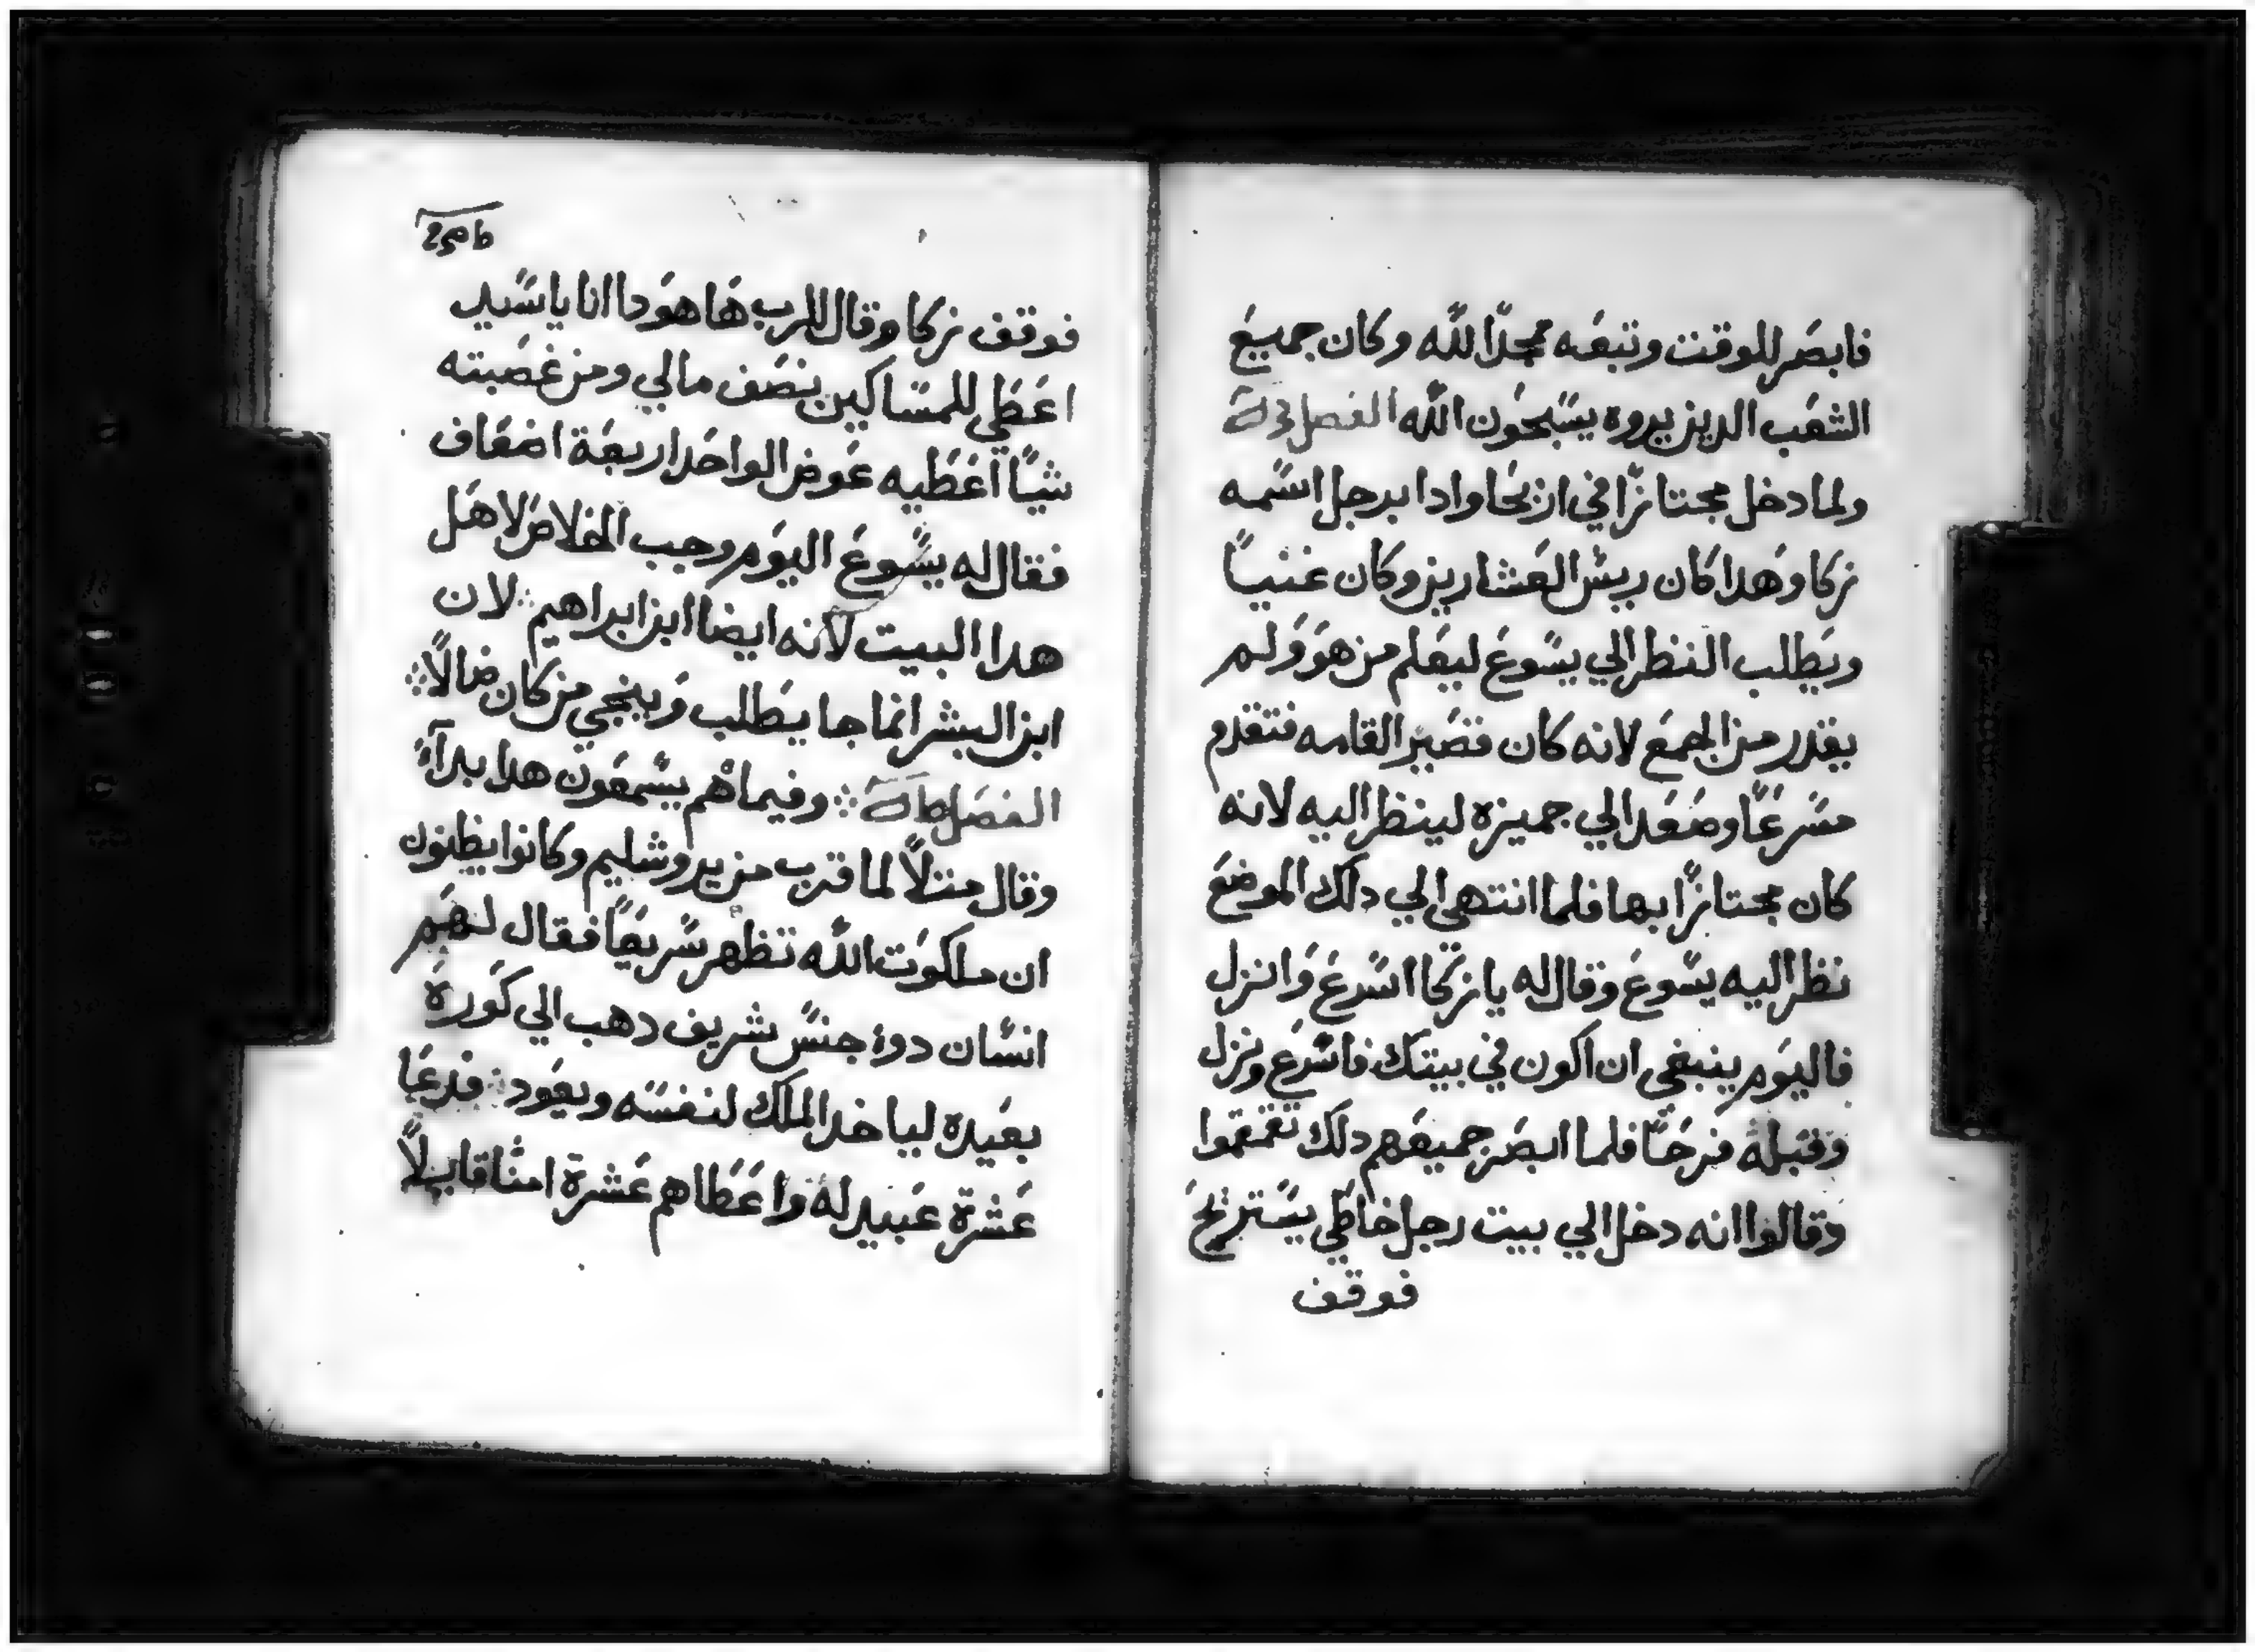 فابصَر للوقت وتبعَه مجدًا الله وكان جميعَ
الشعَب الدين يروه يسَبحَون الله الفصل
ولما دخل مجتازًا في ازيحَا وادا برجل اسَمه
زكا وهَدا كان رييسَ العَشارين وكان غنيًا
ويَطلب النظر الي يسَوعَ ليعَلم من هوَ وَلم
يقدر من الجمعَ لانه كان قصَير القامه فتقدم
مسَرعًا وصَعَد الي جميزه لينظر اليه لانه
كان مجتازًا بها فلما انتهي الي دلك الموضعَ
نظر اليه يسَوعَ وقال له يا زكا اسَرعَ وَانزل
فاليوَم ينبغي ان اكون في بيتك فاسَرعَ ونزل
وَقبَله فرحًا فلما ابصَر جميعَهم دلك تقمقموا
وقالوا انه دخل الي بيت رجل خاطَي يسَتريحَ
فوقف
فوقف زكا وقال للرب هَا هوَدا انا يا سَيد
اعَطَي للمسَاكين نصَف مالي ومن غصَبته
شيًا اعَطَيه عَوض الواحَد اربعَة اضعَاف
فقال له يسَوعَ اليوَم وجب الخلاص لاهَل
هدا البيت لانه ايضا ابن ابراهيم لان
ابن البشر انما جا يطَلب وَينجي من كان ضالًا
الفصَل وفيما هم يسَمعَون هدا بدآء
وقال مثلاً لما قرب من يروشليم وكانوا يظنون
ان ملكوَت الله تظهر سَريعًا فقال لهَم
انسَان دوا جنسَ شريف دهب الي كوَرة
بعَيدة لياخد الملك لنفسَه ويعَود فدعَا
عَشرة عَبيد له واعَطَاهم عَشرة امنًا قايلاً